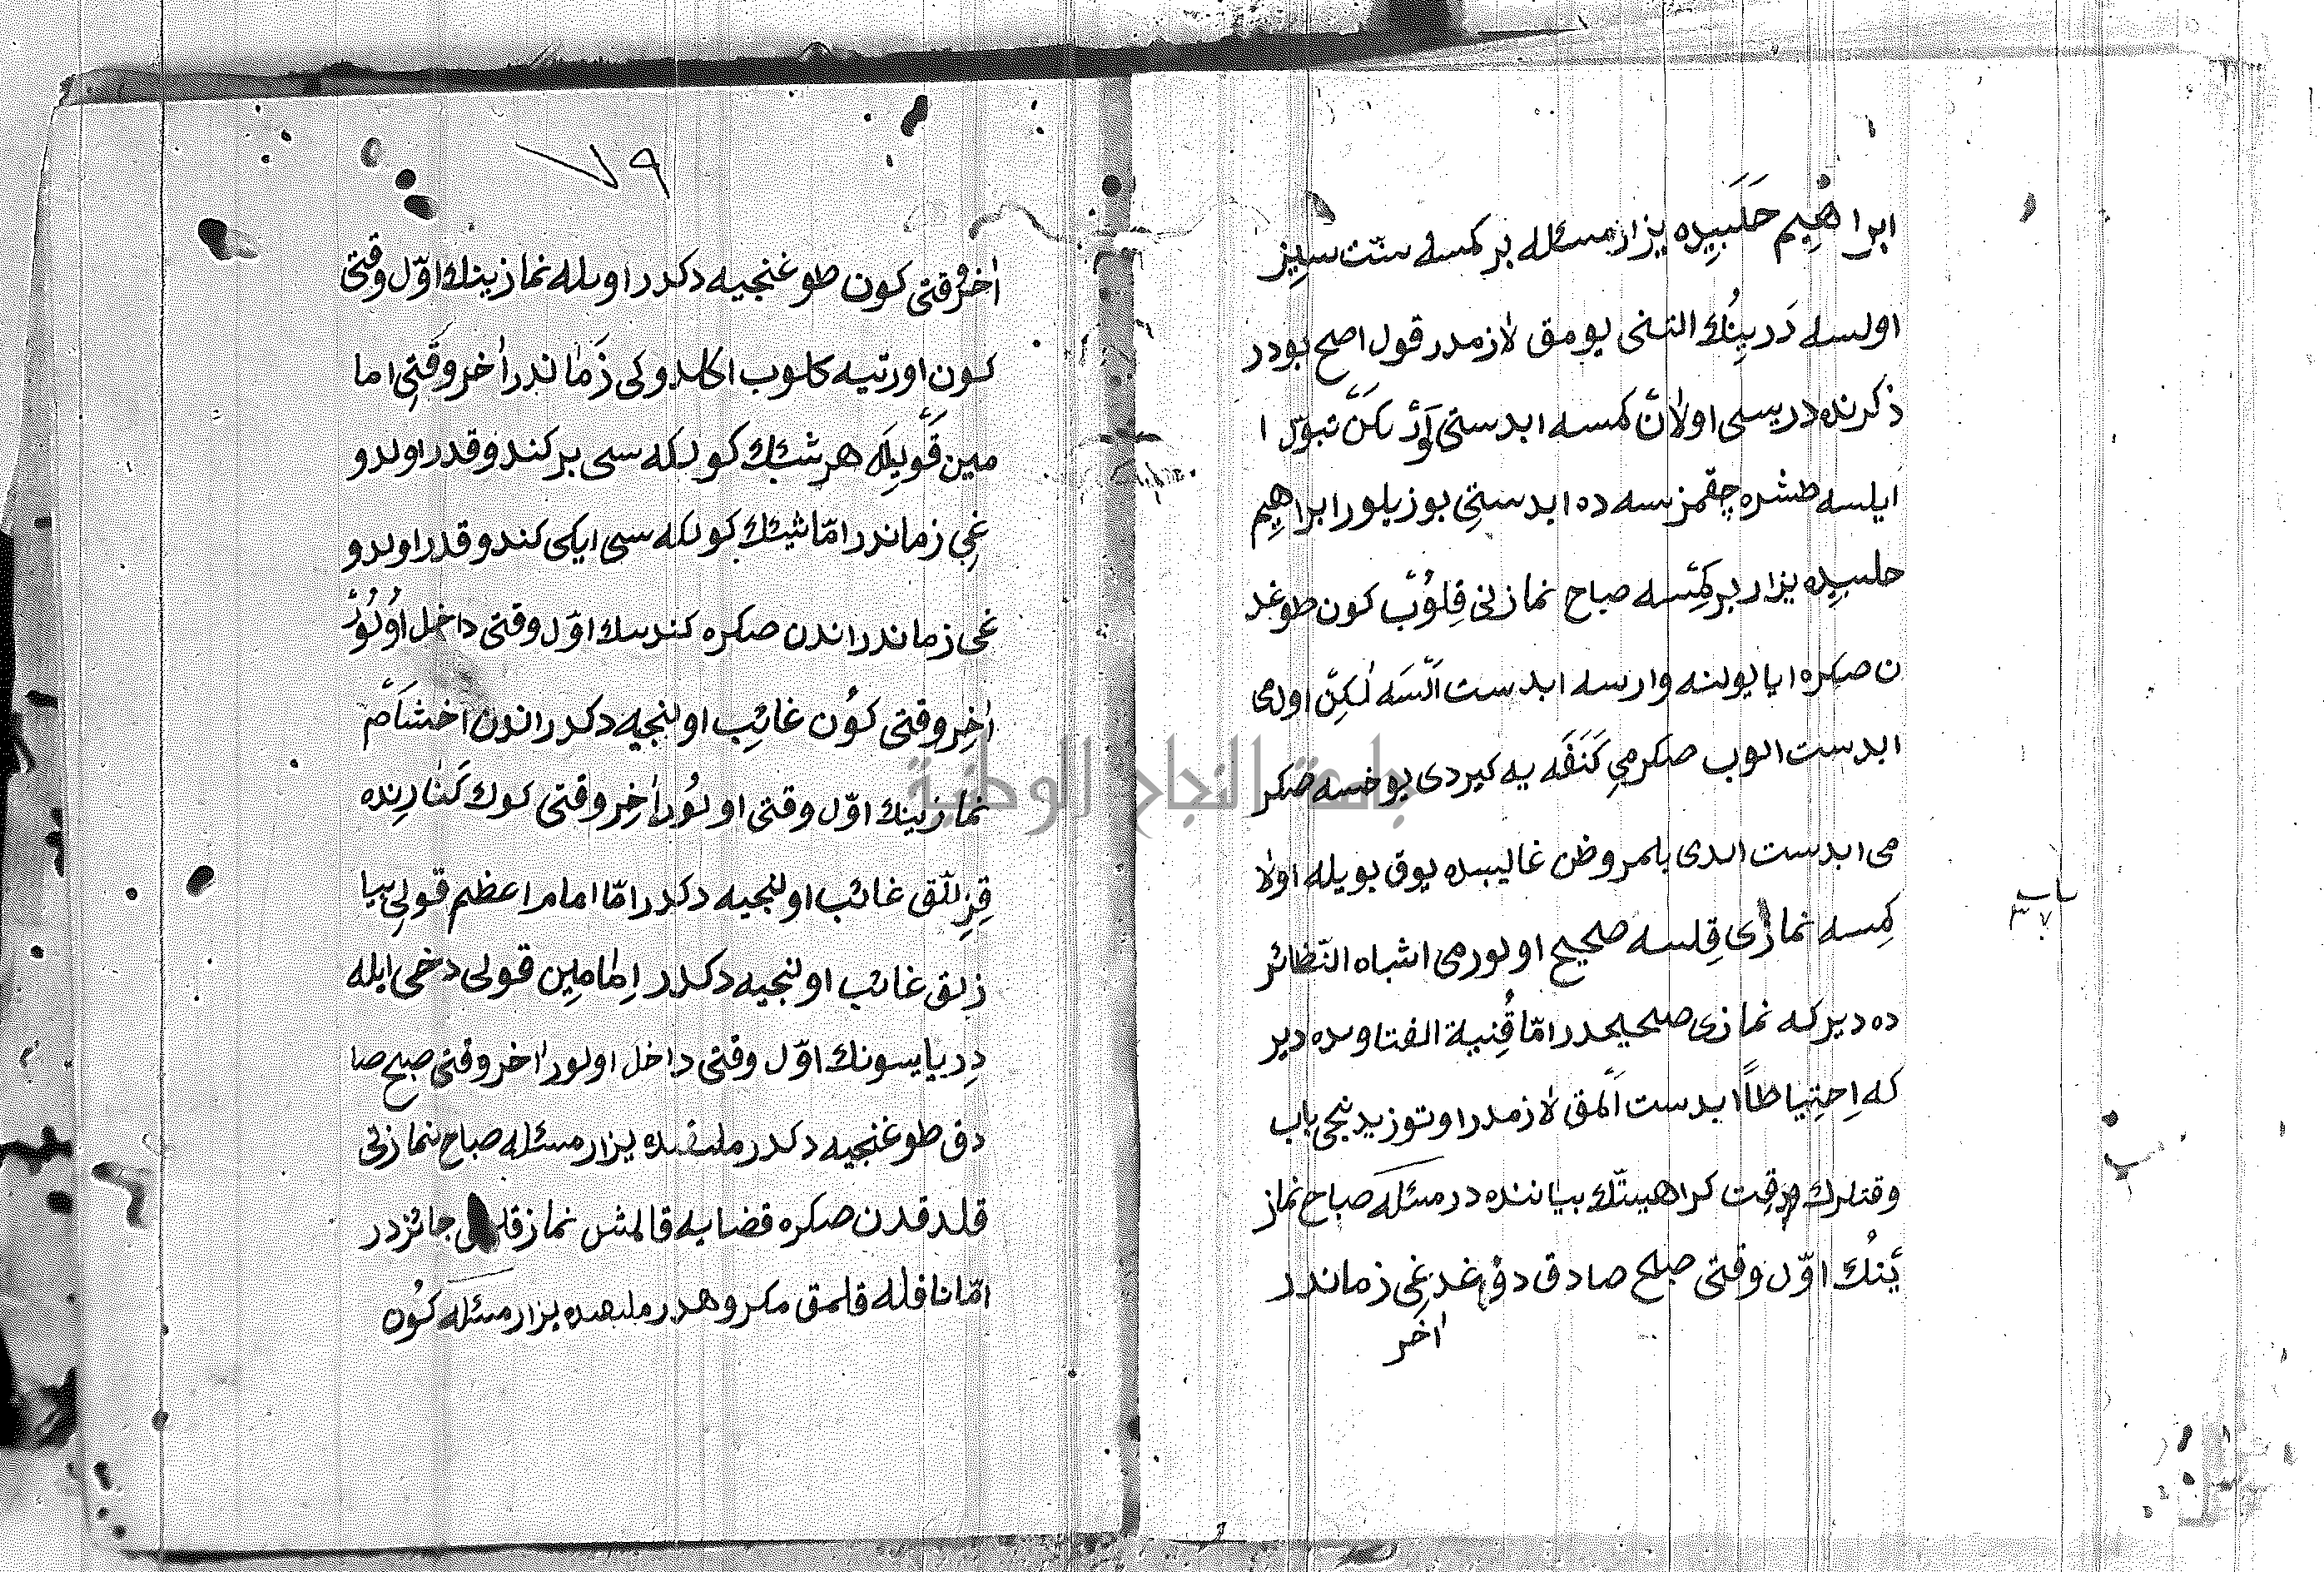 ابراهيم حلبيده يزار مسئله بر كمسه سنت سيز
اولسه درينك التنى يومق لازمدر قول اصح بودر
ذكرنده دريسى اولان كمسه ابدستى
ايلسه طشره چقمزسه ده ابدستى بوزيلور ابراهيم
حلبيده يزار بر كمسه صباح نمازنى قلوب كون طوغد
ن صكره ايا يولنه وارسه ابدست السه لكن اولمى
ابدست الوب صكرمى كنفه يه كيردى يوخسه صكر
مى ابدست الدى بلمز وظن غالبده يوق بويله اولا
كمسه نمازى قلسه صحيح اولورمى اشباه النظائر
ده دير كه نمازى صحيحدر اما قنية الفتاوىده دير
كه احتياطا ابدست المق لازمدر اوتوز يدنجى باب
وقتلرك وقت كراهيتك بياننده در مسئله صباح نماز
ينك اول وقتى صبح صادق دوغدغى زماندر
اخر
٧٩
اخر وقتى كون طوغنجيه دكدر اويله نمازينك اول وقتى
كون اورتيه كلوب اكلدوكى زماندر اخر وقتى اما
مين قوليله هر شئك كولكه سى بر كندو قدر اولدو
غى زماندر اما شيئك كولكه سى ايكى كندو قدر اولدو
غى زماندر اندن صكره كندينك اول وقتى داخل اولور
اخر وقتى كون غائب اولنجيه دكدر اندن اخشام
نمازينك اول وقتى اولور اخر وقتى كوك كنارنده
قزللق غائب اولنجيه دكدر اما امام اعظم قولى بيا
زلق غائب اولنجيه دكدر امامين قولى دخى ايله
در ياتسونك اول وقتى داخل اولور اخر وقتى صبح صا
دق طوغنجيه دكدر ملتقىده يزار مسئله صباح نمازنى
قلدقدن صكره قضايه قالمش نماز جائزدر
اما نافله قلمق مكروهدر ملتقىده يزار مسئله كون
باب
٣٧